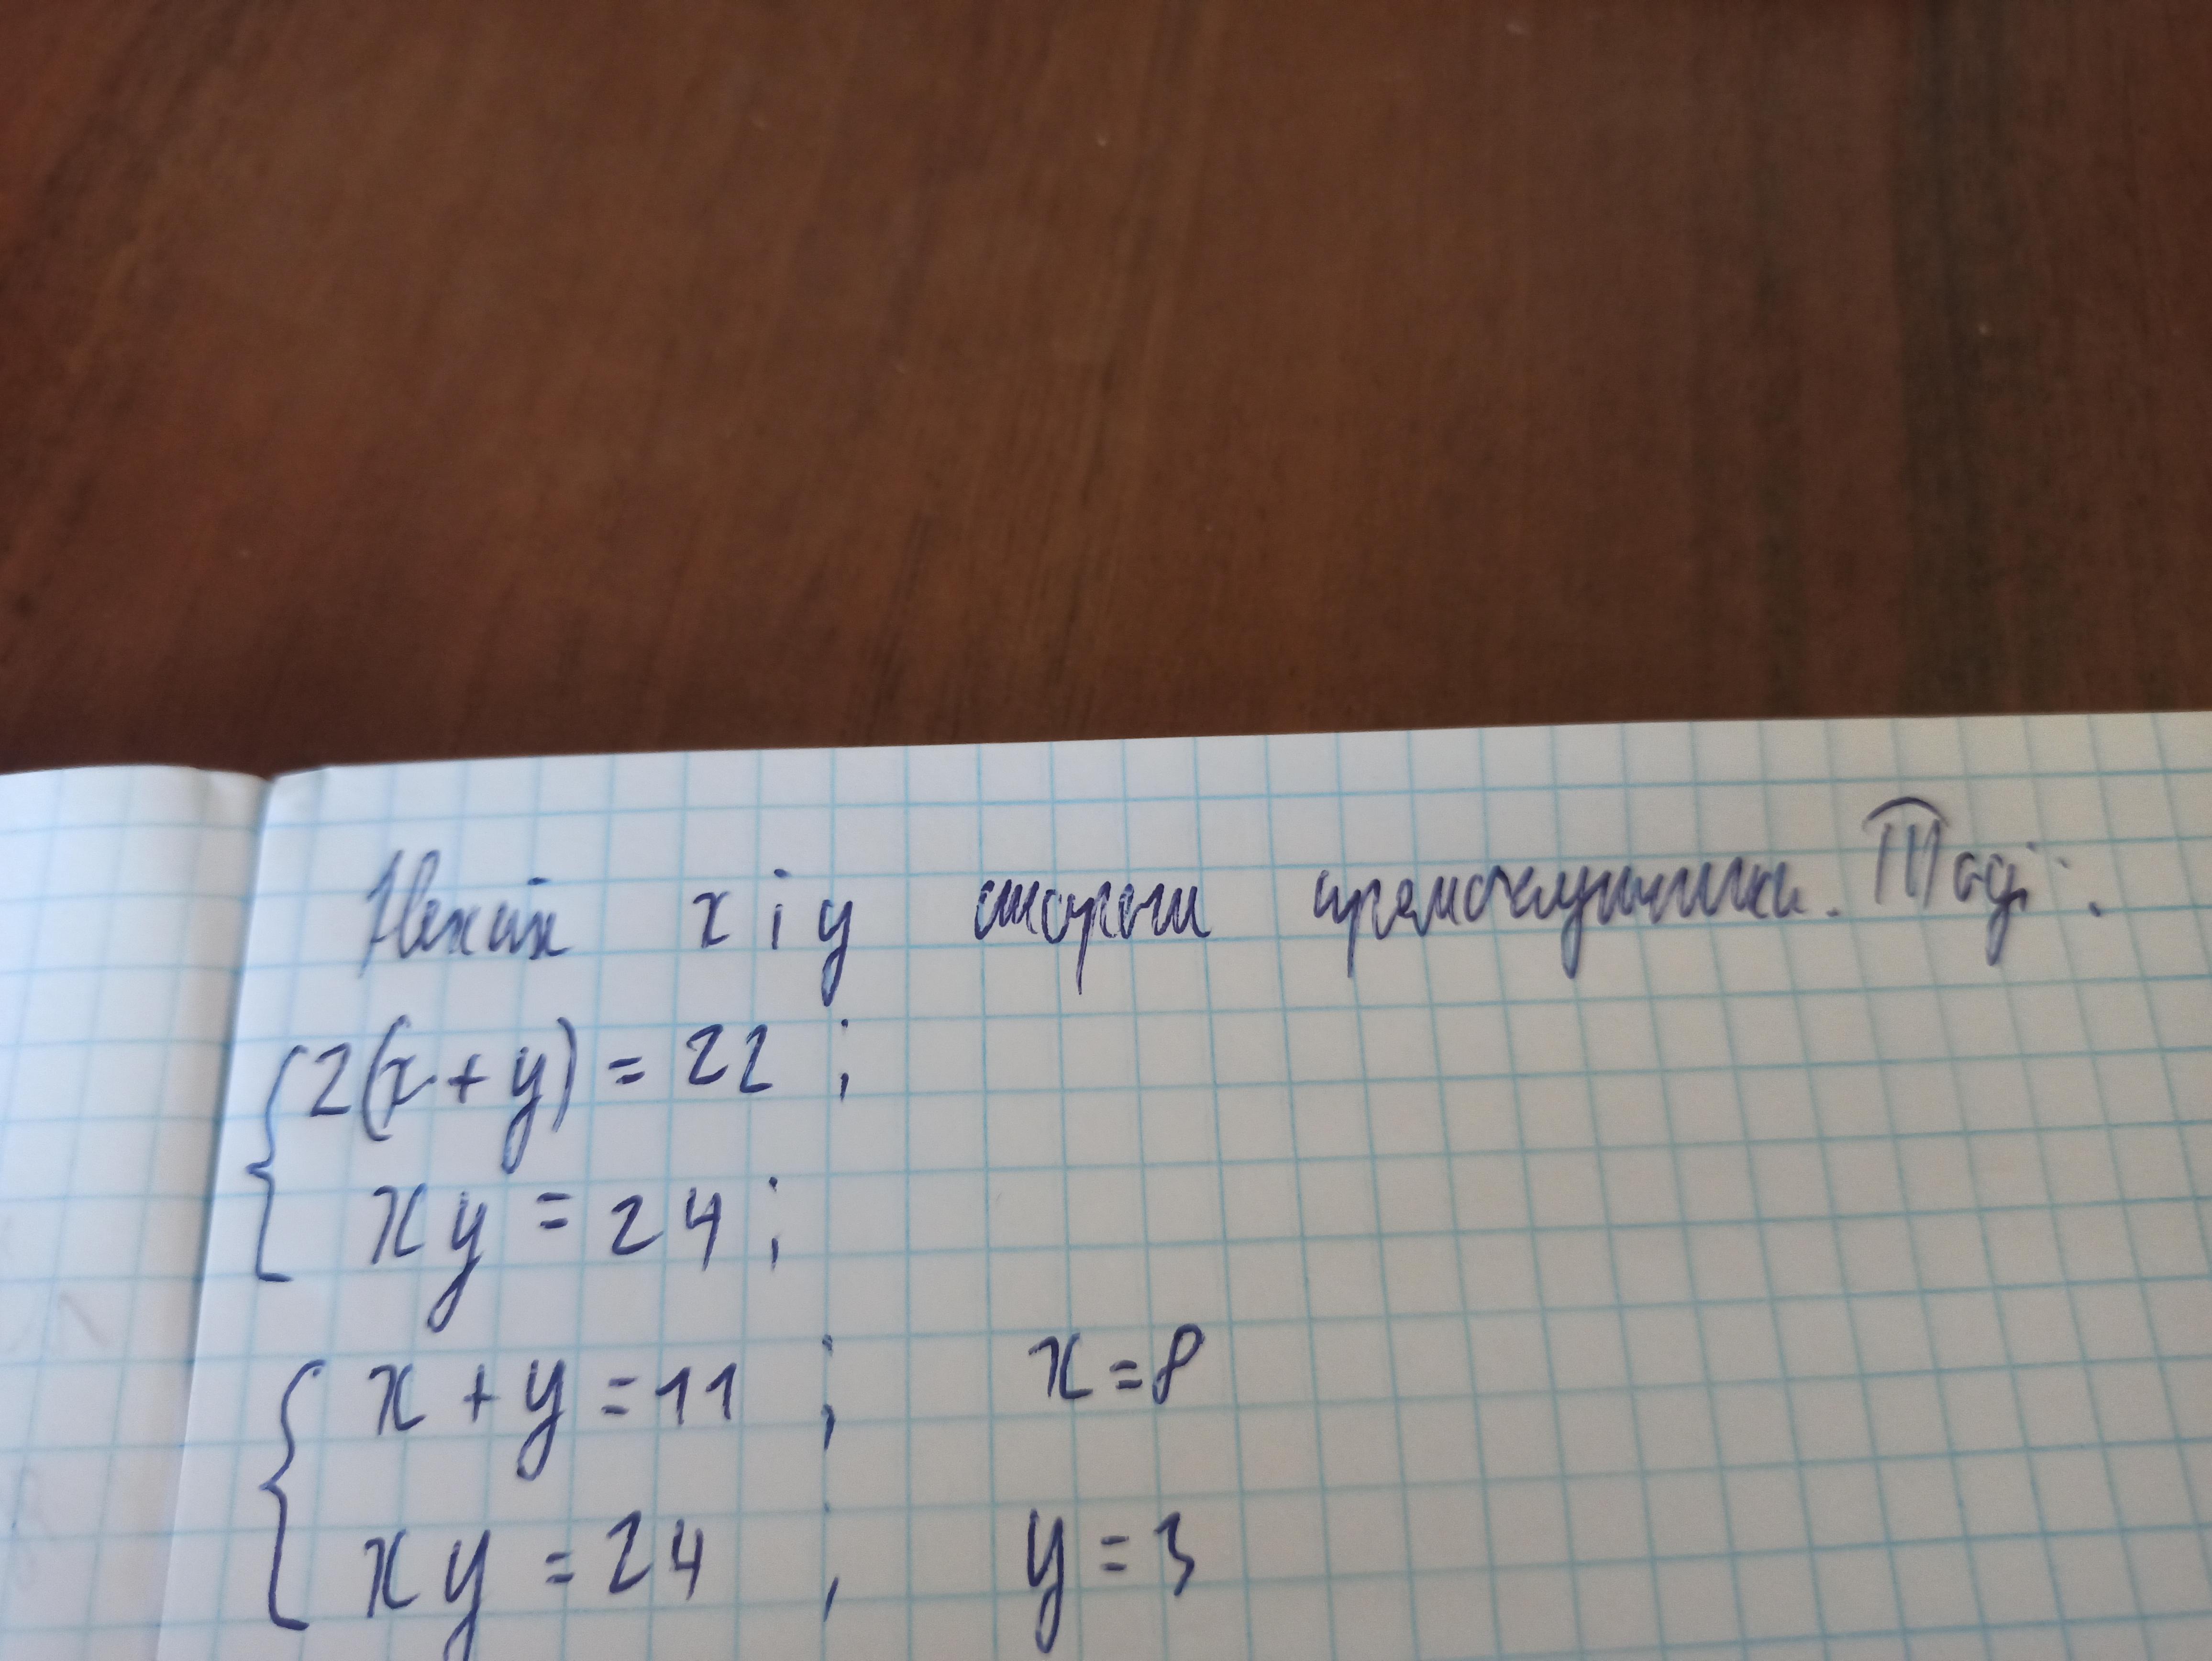 Нехай x і y сторони прямокутника. Тоді:
{2(x+y)=22;
xy=24;
{x+y=11; x=8
xy=24, y=3